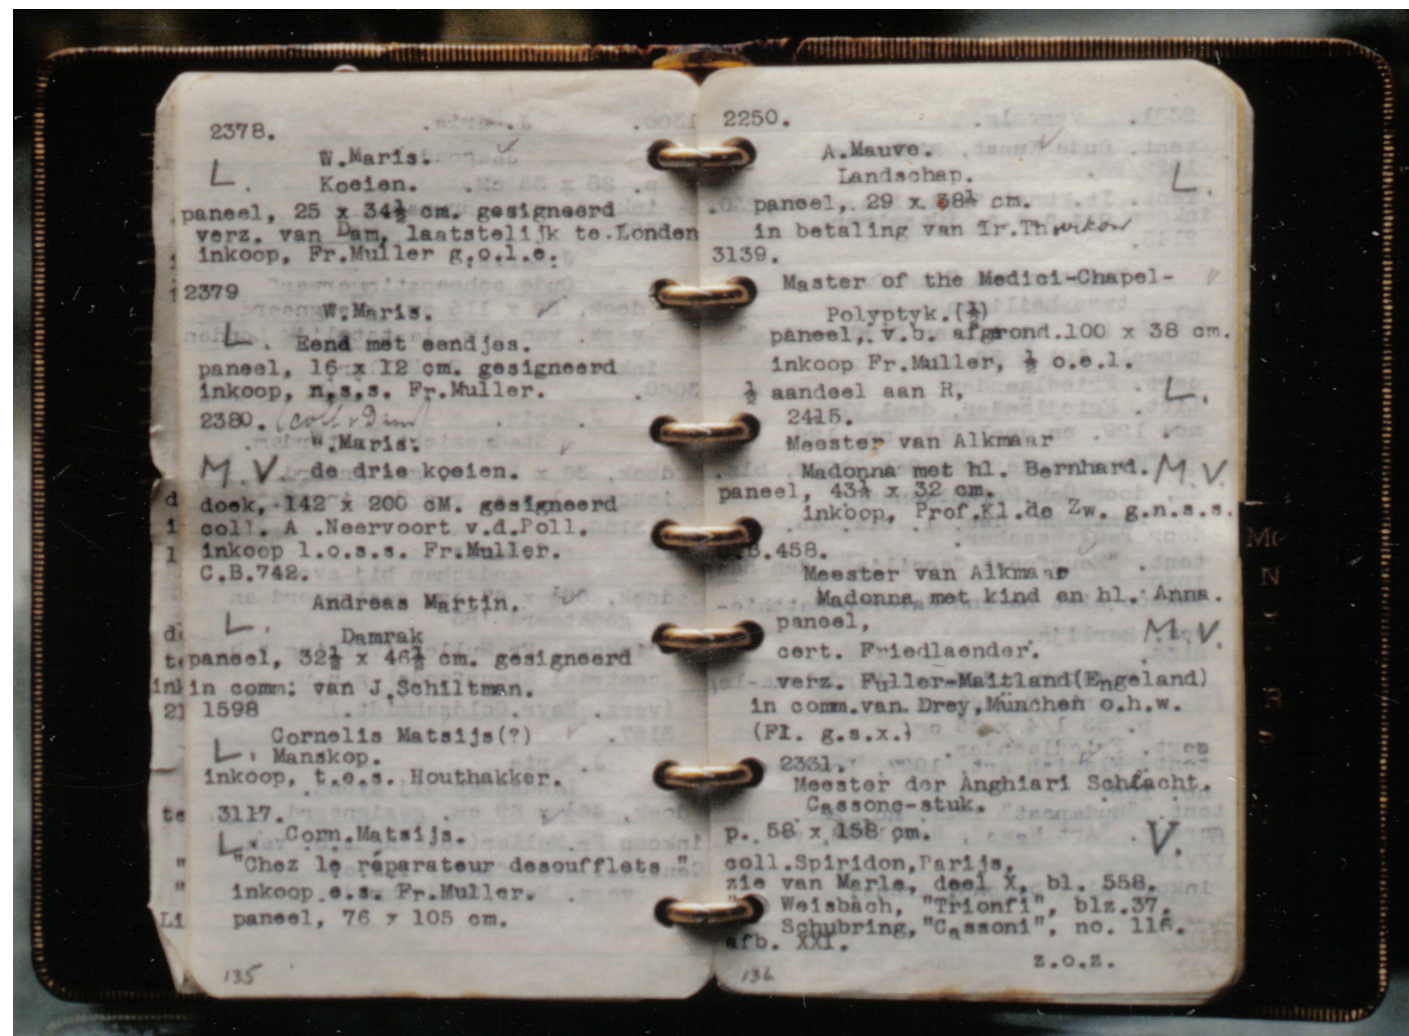 2378.
W.Maris.
L. Koeien.
paneel, 25 x 34½ cm. gesigneerd
verz. van Dam, laatstelijk te Londen
inkoop, Fr.Muller g.o.l.e.
2379
W.Maris.
L. Eend met eendjes.
paneel, 16 x 12 cm. gesigneerd
inkoop, n.s.s. Fr.Muller.
2380.
W.Maris.
M.V. de drie koeien.
doek, 142 x 200 cM. gesigneerd
coll. A .Neervoort v.d.Poll.
inkoop l.o.s.s. Fr.Muller.
C.B.742.
Andreas Martin.
L. Damrak
paneel, 32½ x 46½ cm. gesigneerd
in comm: van J.Schiltman.
1598
Cornelis Matsijs(?)
L. Manskop.
inkoop, t.e.s. Houthakker.
3117.
Corn.Matsijs.
L.
"Chez le réparateur desoufflets "
inkoop e.s. Fr.Muller.
paneel, 76 x 105 cm.
135
2250.
A.Mauve.
Landschap. L.
paneel, 29 x 38½ cm.
in betaling van Ir.Th
3139.
Master of the Medici-Chapel-
Polyptyk.(½)
paneel, v.b. afgrond.100 x 38 cm.
inkoop Fr.Muller, ½ o.e.l.
½ aandeel aan R. L.
2415.
Meester van Alkmaar
Madonna met hl. Bernhard. M.V.
paneel, 43½ x 32 cm.
inkoop, Prof.Kl.de Zw. g.n.s.s.
.B.458.
Meester van Alkmaar
Madonna met kind en hl. Anna.
paneel, M.V.
cert. Friedlaender.
verz. Fuller-Maitland(Engeland)
in comm.van Drey,München o.h.w.
(Fl. g.s.x.)
2331.
Meester der Anghiari Schlacht.
Cassone-stuk.
p. 58 x 158 cm. V.
coll.Spiridon,Parijs,
zie van Marle, deel X, bl. 558.
" Weisbach, "Trionfi", blz.37.
Schubring,"Cassoni", no. 116.
afb. XXI.
z.o.z.
136